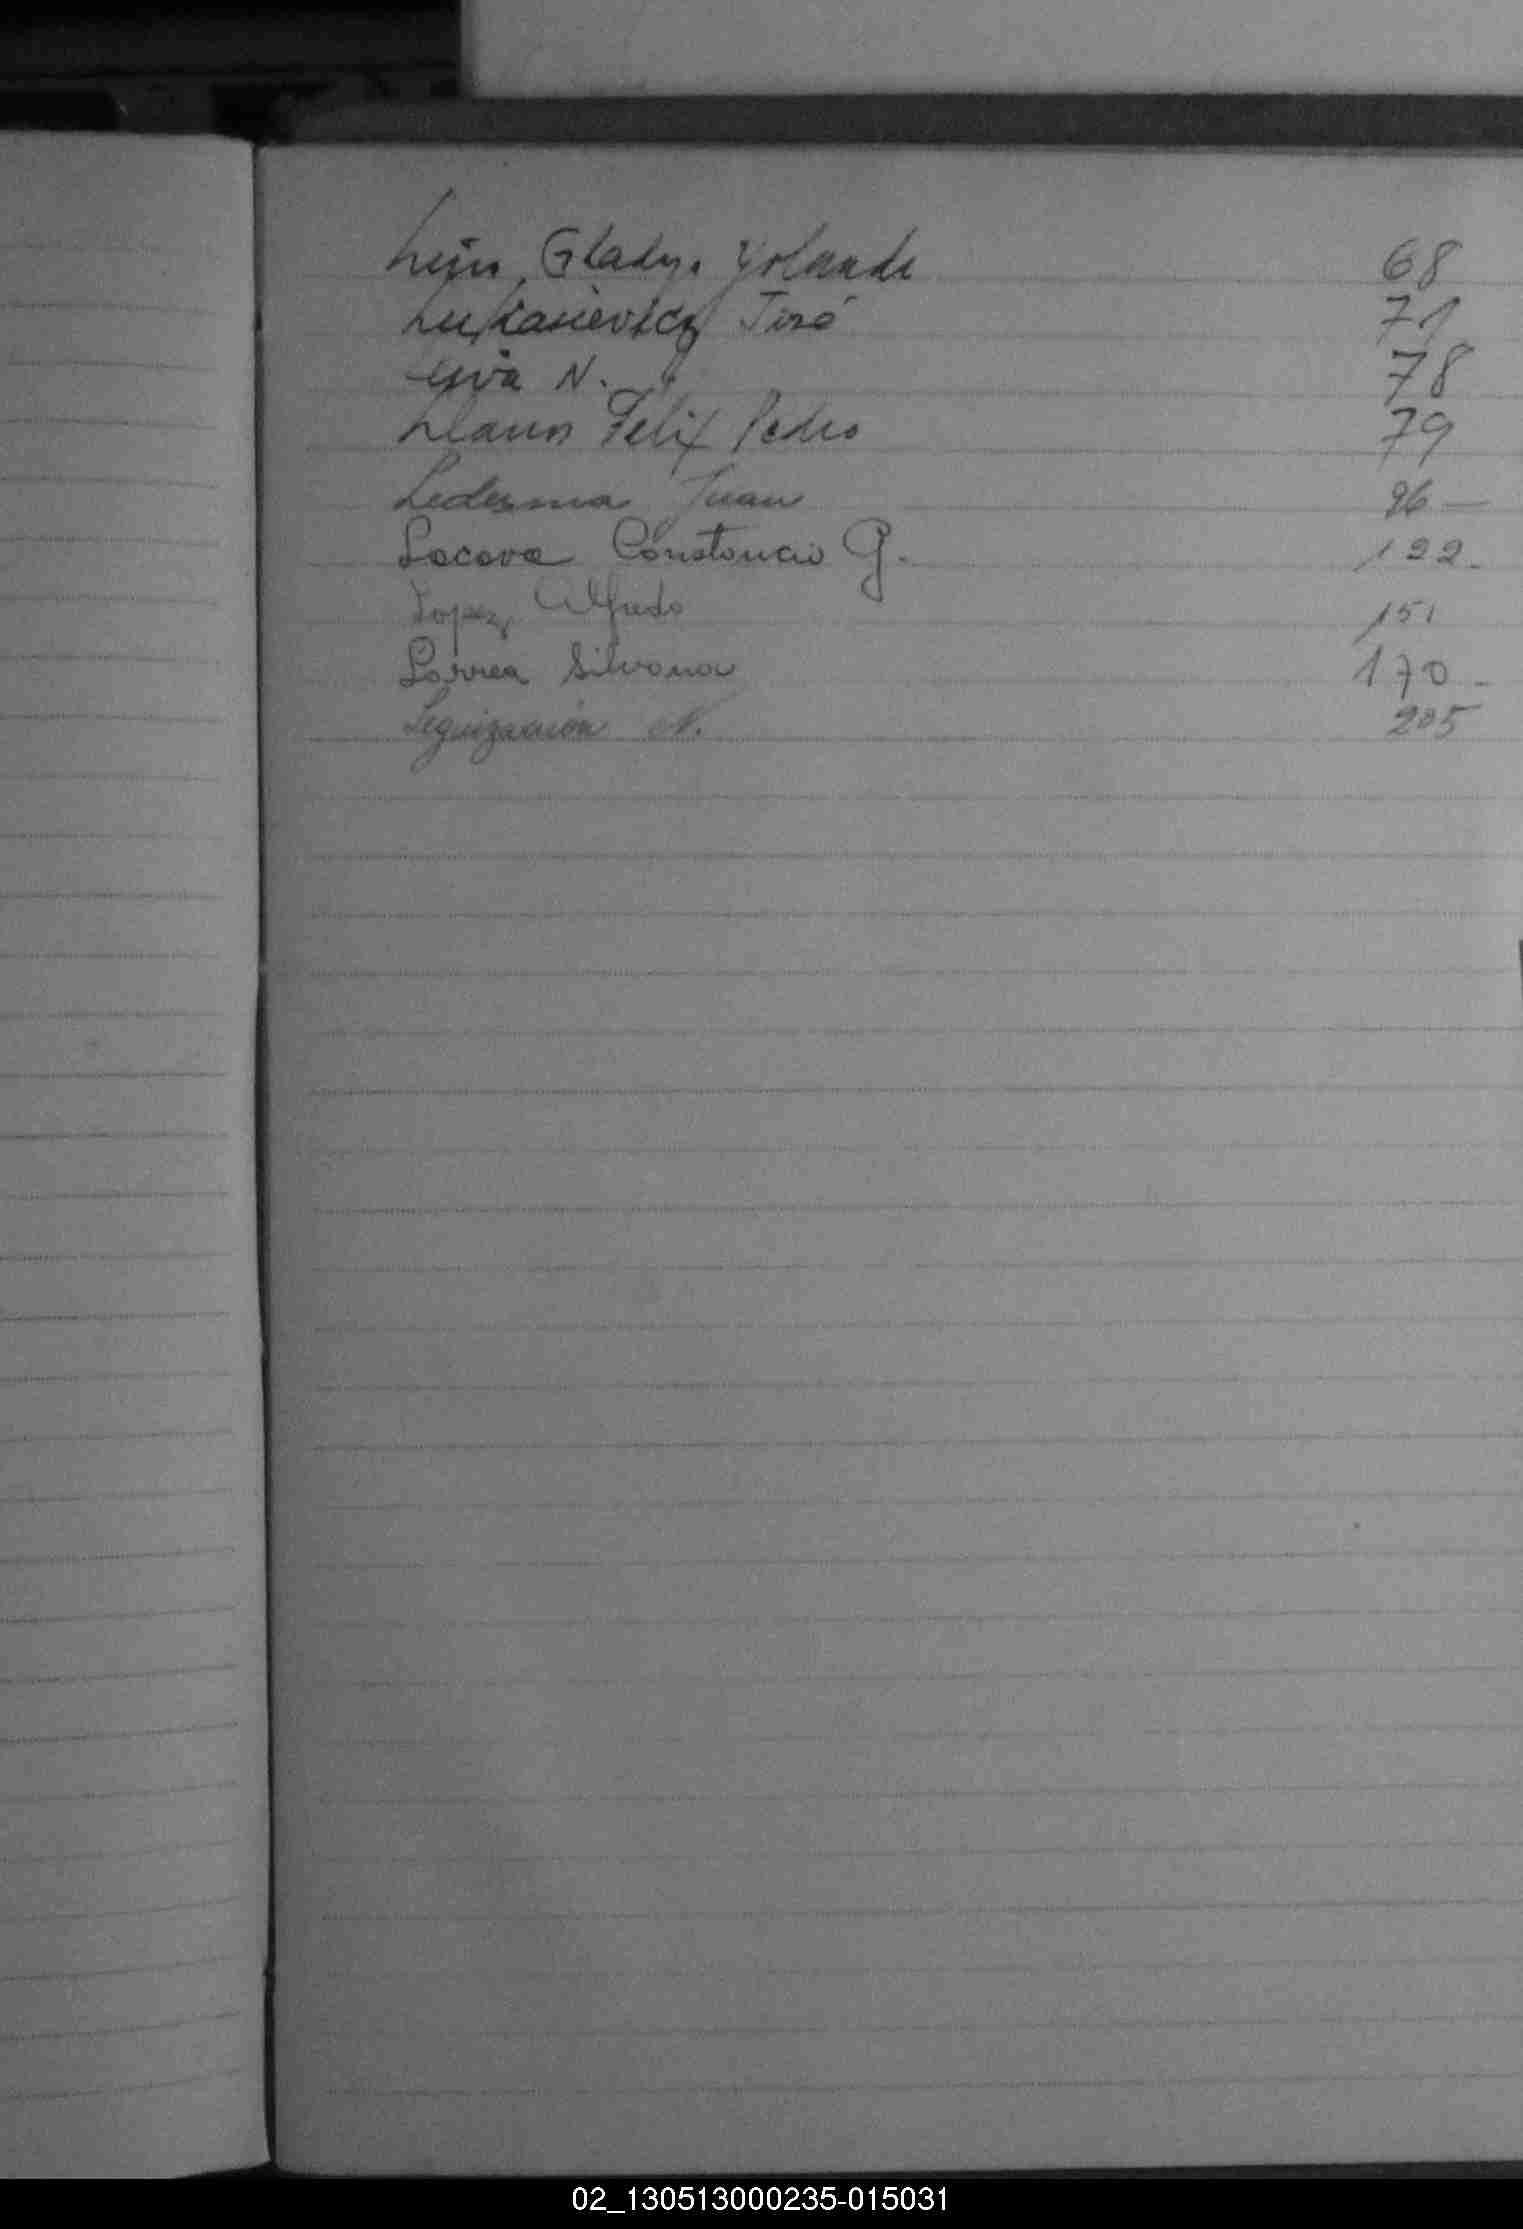 Gladys Yolanda 68
Lukasievicz José 71
Leiva N. 78
Llanos Felix Pedro 79
Ledesma Juan 96 —
Lacava Constancio G. 122 -
Lopez Alfredo 151
Larrea Silvana 170 -
Leguizamón N. 205
02_130513000235-015031